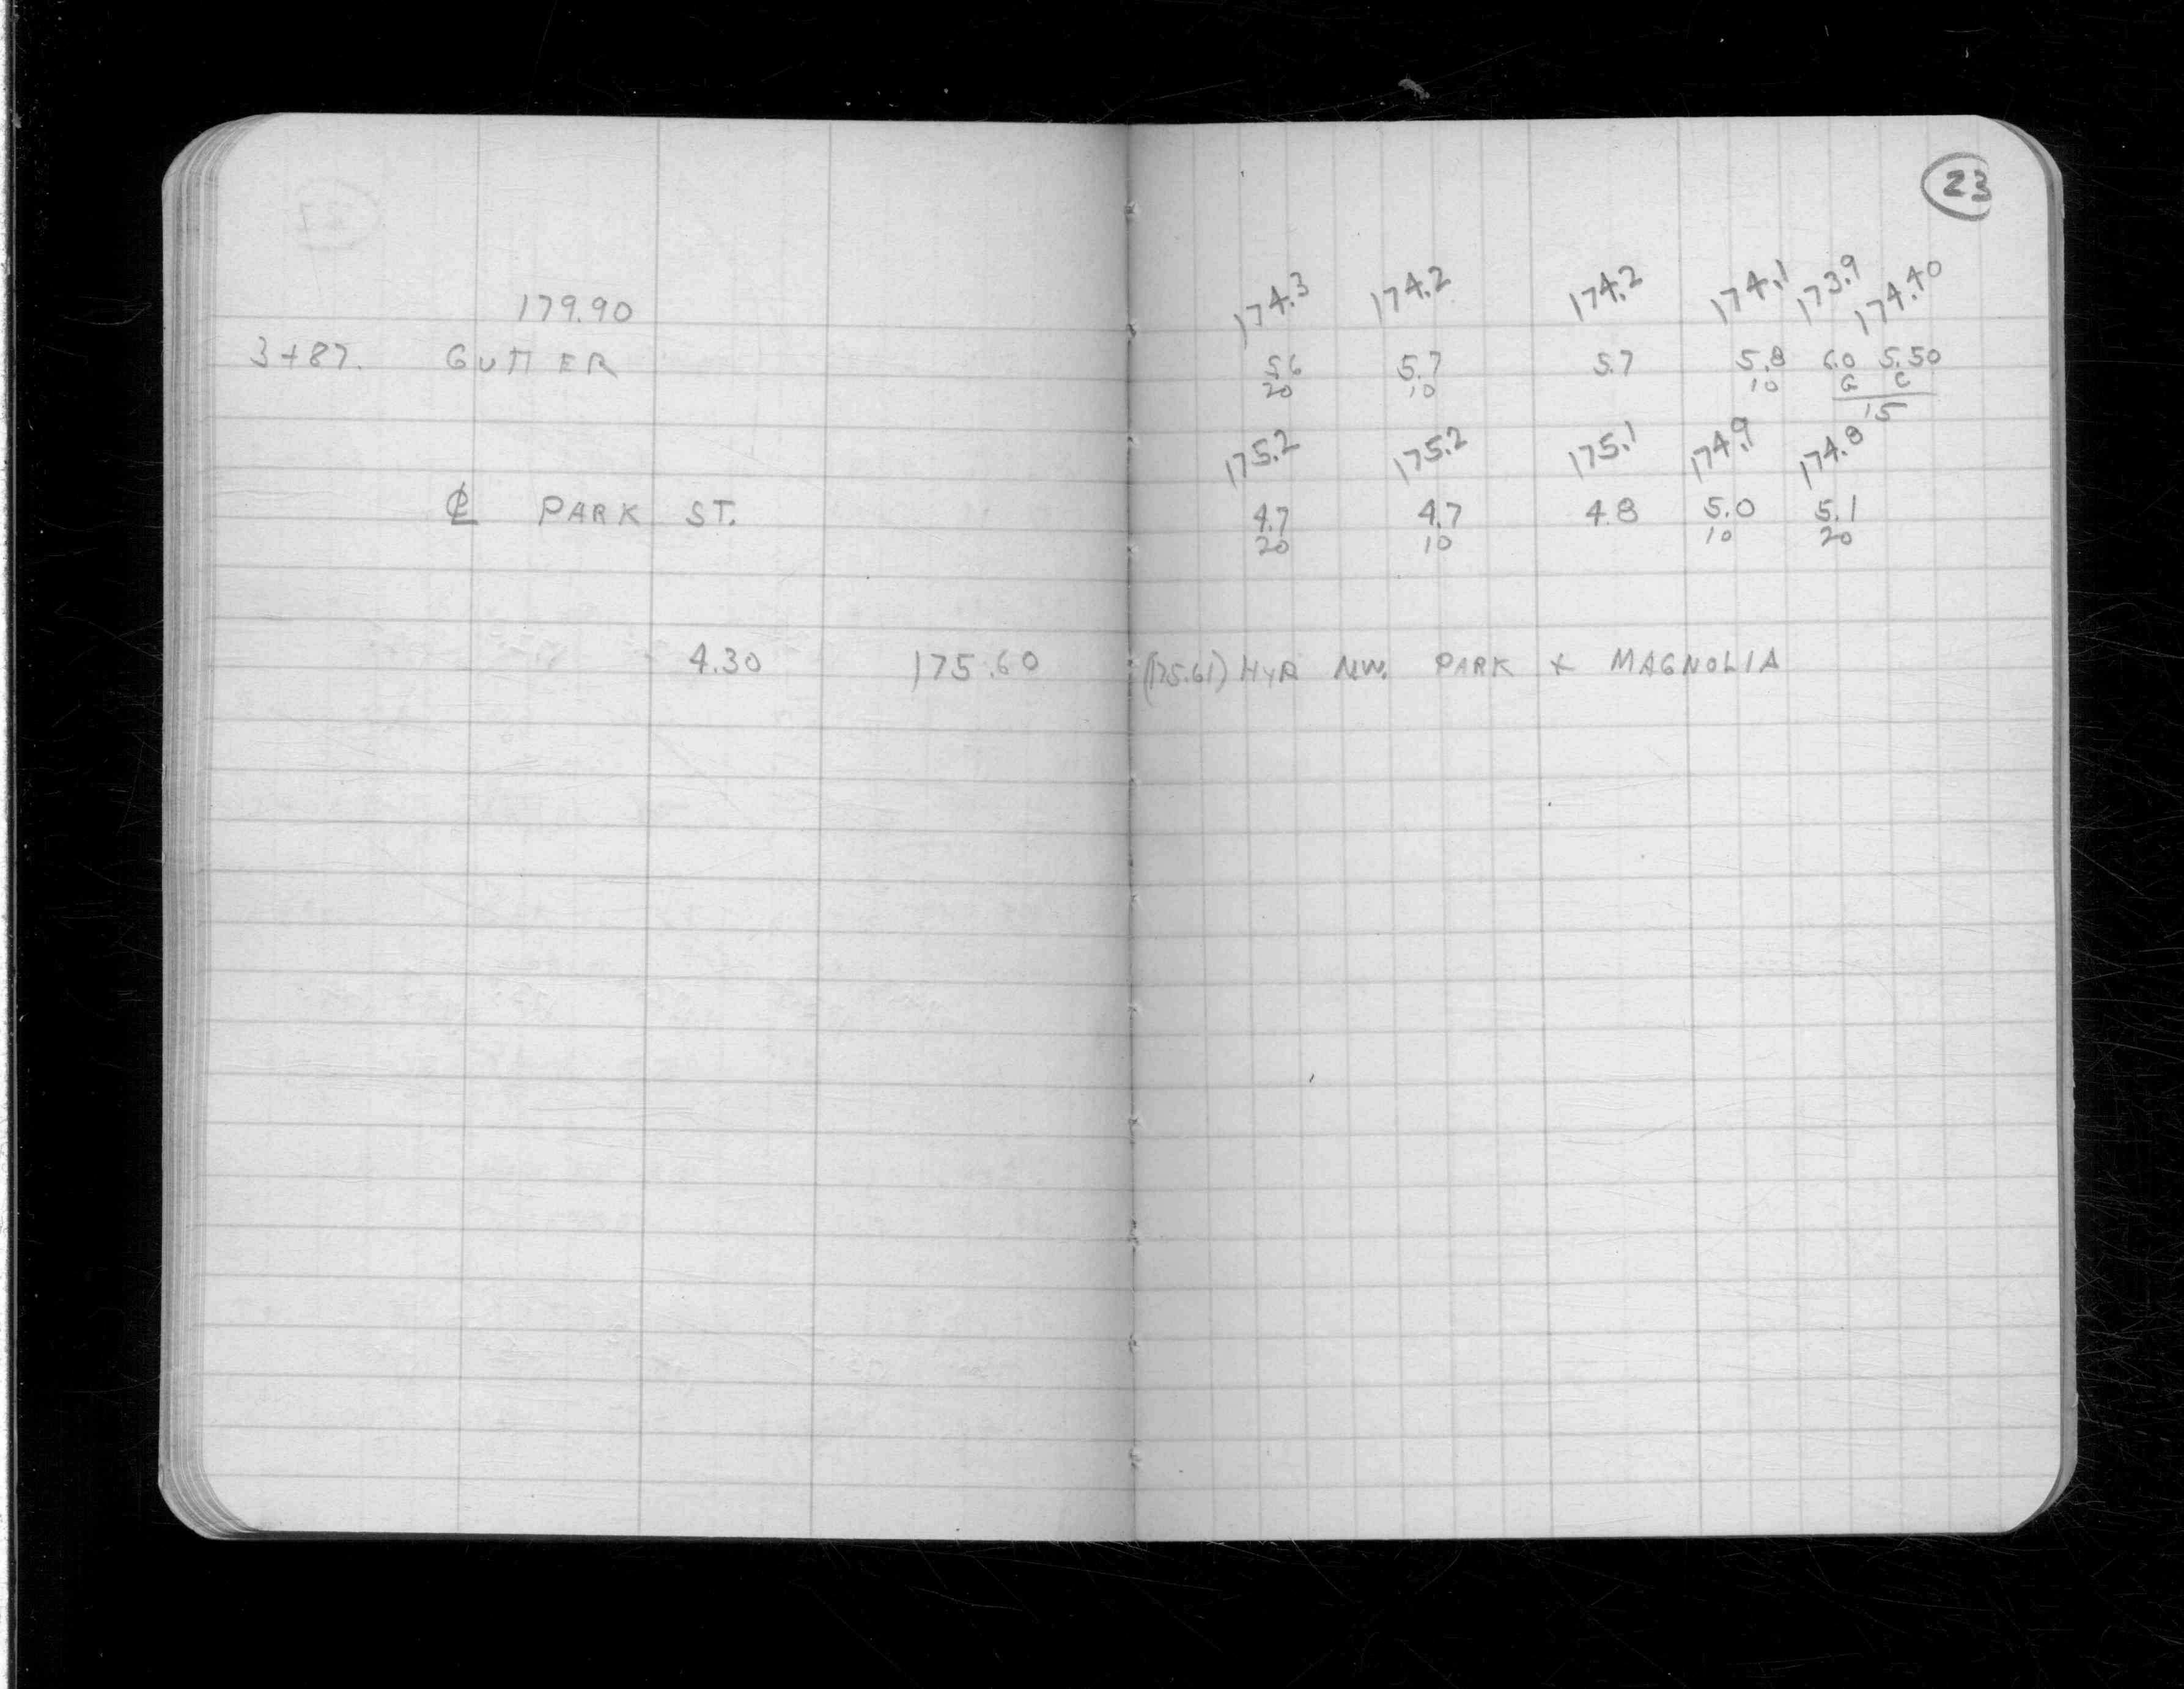 23
179.90 174.3 174.2 174.2 174.1 173.9 174.40
3+87. GUTTER 5.6 5.7 5.7 5.8 6.0 5.50
20 10 10 G C
15
175.2 175.2 175.1 174.9 174.8
℄ PARK ST. 4.7 4.7 4.8 5.0 5.1
20 10 10 20
4.30 175.60 (175.61) HYD NW. PARK & MAGNOLIA